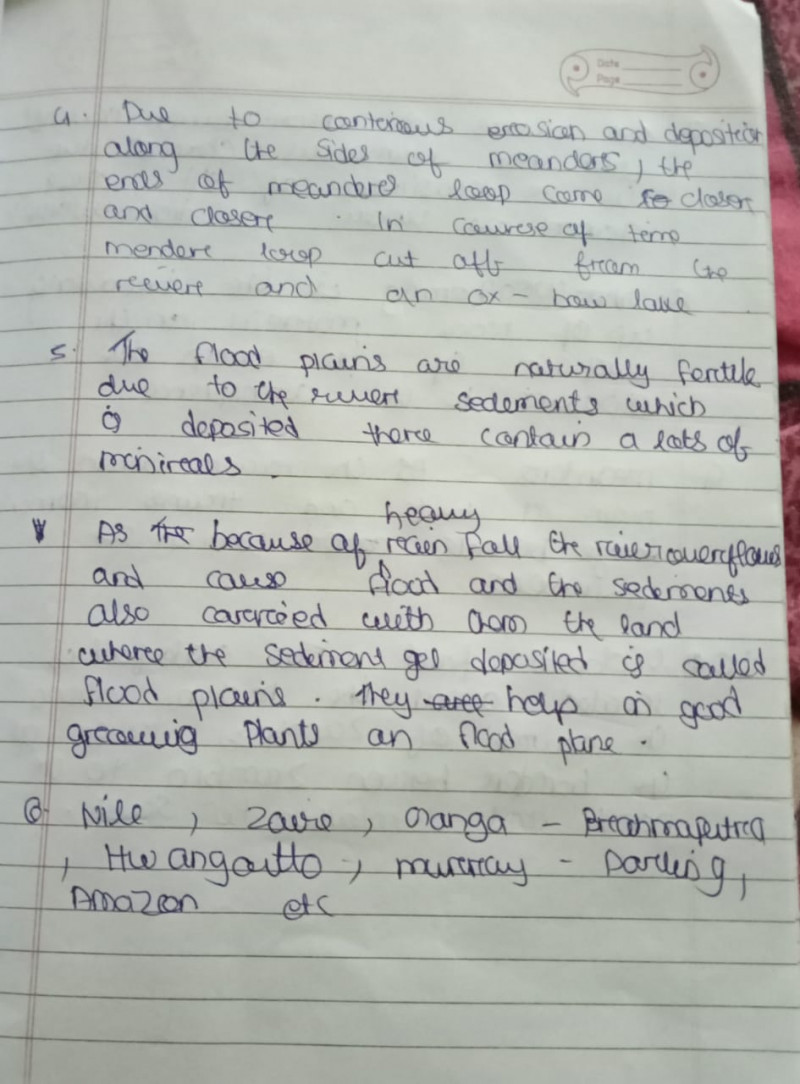 Date
Page
4. Due to conterious erosian and deposition
along the sides of meanders, the
ends of meanders loop come to closer
and closer . In course of teme
mendere loop cut off from the
reevere and an ox - bow lake
5. The flood plains are naturally fertile
due to the rivers sedements which
is deposited there contain a lots of
minireals .
heavy
As the because of rain fall the river overflows
and cause flood and the sedements
also carrcied with them the land
where the sediment get deposited is called
flood plains . They are help in good
growing plants on flood plane .
6. Nile , Zaire , Ganga - Breahmaputra
, Hwangautto , murray - Darling ,
Amazon etc